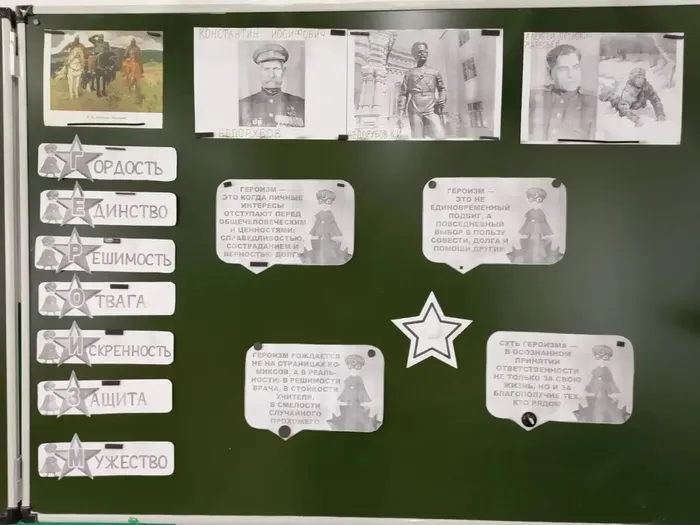 КОНСТАНТИН ИОСИФОВИЧ
НЕДОРУБОВ
НЕДОРУБОВ К.И.
АЛЕКСЕЙ ПЕТРОВИЧ
МАРЕСЬЕВ
ГОРДОСТЬ
ЕДИНСТВО
РЕШИМОСТЬ
ОТВАГА
ИСКРЕННОСТЬ
ЗАЩИТА
МУЖЕСТВО
ГЕРОИЗМ —
ЭТО КОГДА ЛИЧНЫЕ
ИНТЕРЕСЫ
ОТСТУПАЮТ ПЕРЕД
ОБЩЕЧЕЛОВЕЧЕСКИМ
И ЦЕННОСТЯМИ:
СПРАВЕДЛИВОСТЬЮ,
СОСТРАДАНИЕМ И
ВЕРНОСТЬЮ ДОЛГУ
ГЕРОИЗМ —
ЭТО НЕ
ЕДИНОВРЕМЕННЫЙ
ПОДВИГ, А
ПОВСЕДНЕВНЫЙ
ВЫБОР В ПОЛЬЗУ
СОВЕСТИ, ДОЛГА И
ПОМОЩИ ДРУГИМ
ГЕРОИЗМ РОЖДАЕТСЯ
НЕ НА СТРАНИЦАХ КО-
МИКСОВ, А В РЕАЛЬ-
НОСТИ: В РЕШИМОСТИ
ВРАЧА, В СТОЙКОСТИ
УЧИТЕЛЯ,
В СМЕЛОСТИ
СЛУЧАЙНОГО
ПРОХОЖЕГО
СУТЬ ГЕРОИЗМА —
В ОСОЗНАННОМ
ПРИНЯТИИ
ОТВЕТСТВЕННОСТИ
НЕ ТОЛЬКО ЗА СВОЮ
ЖИЗНЬ, НО И ЗА
БЛАГОПОЛУЧИЕ ТЕХ,
КТО РЯДОМ